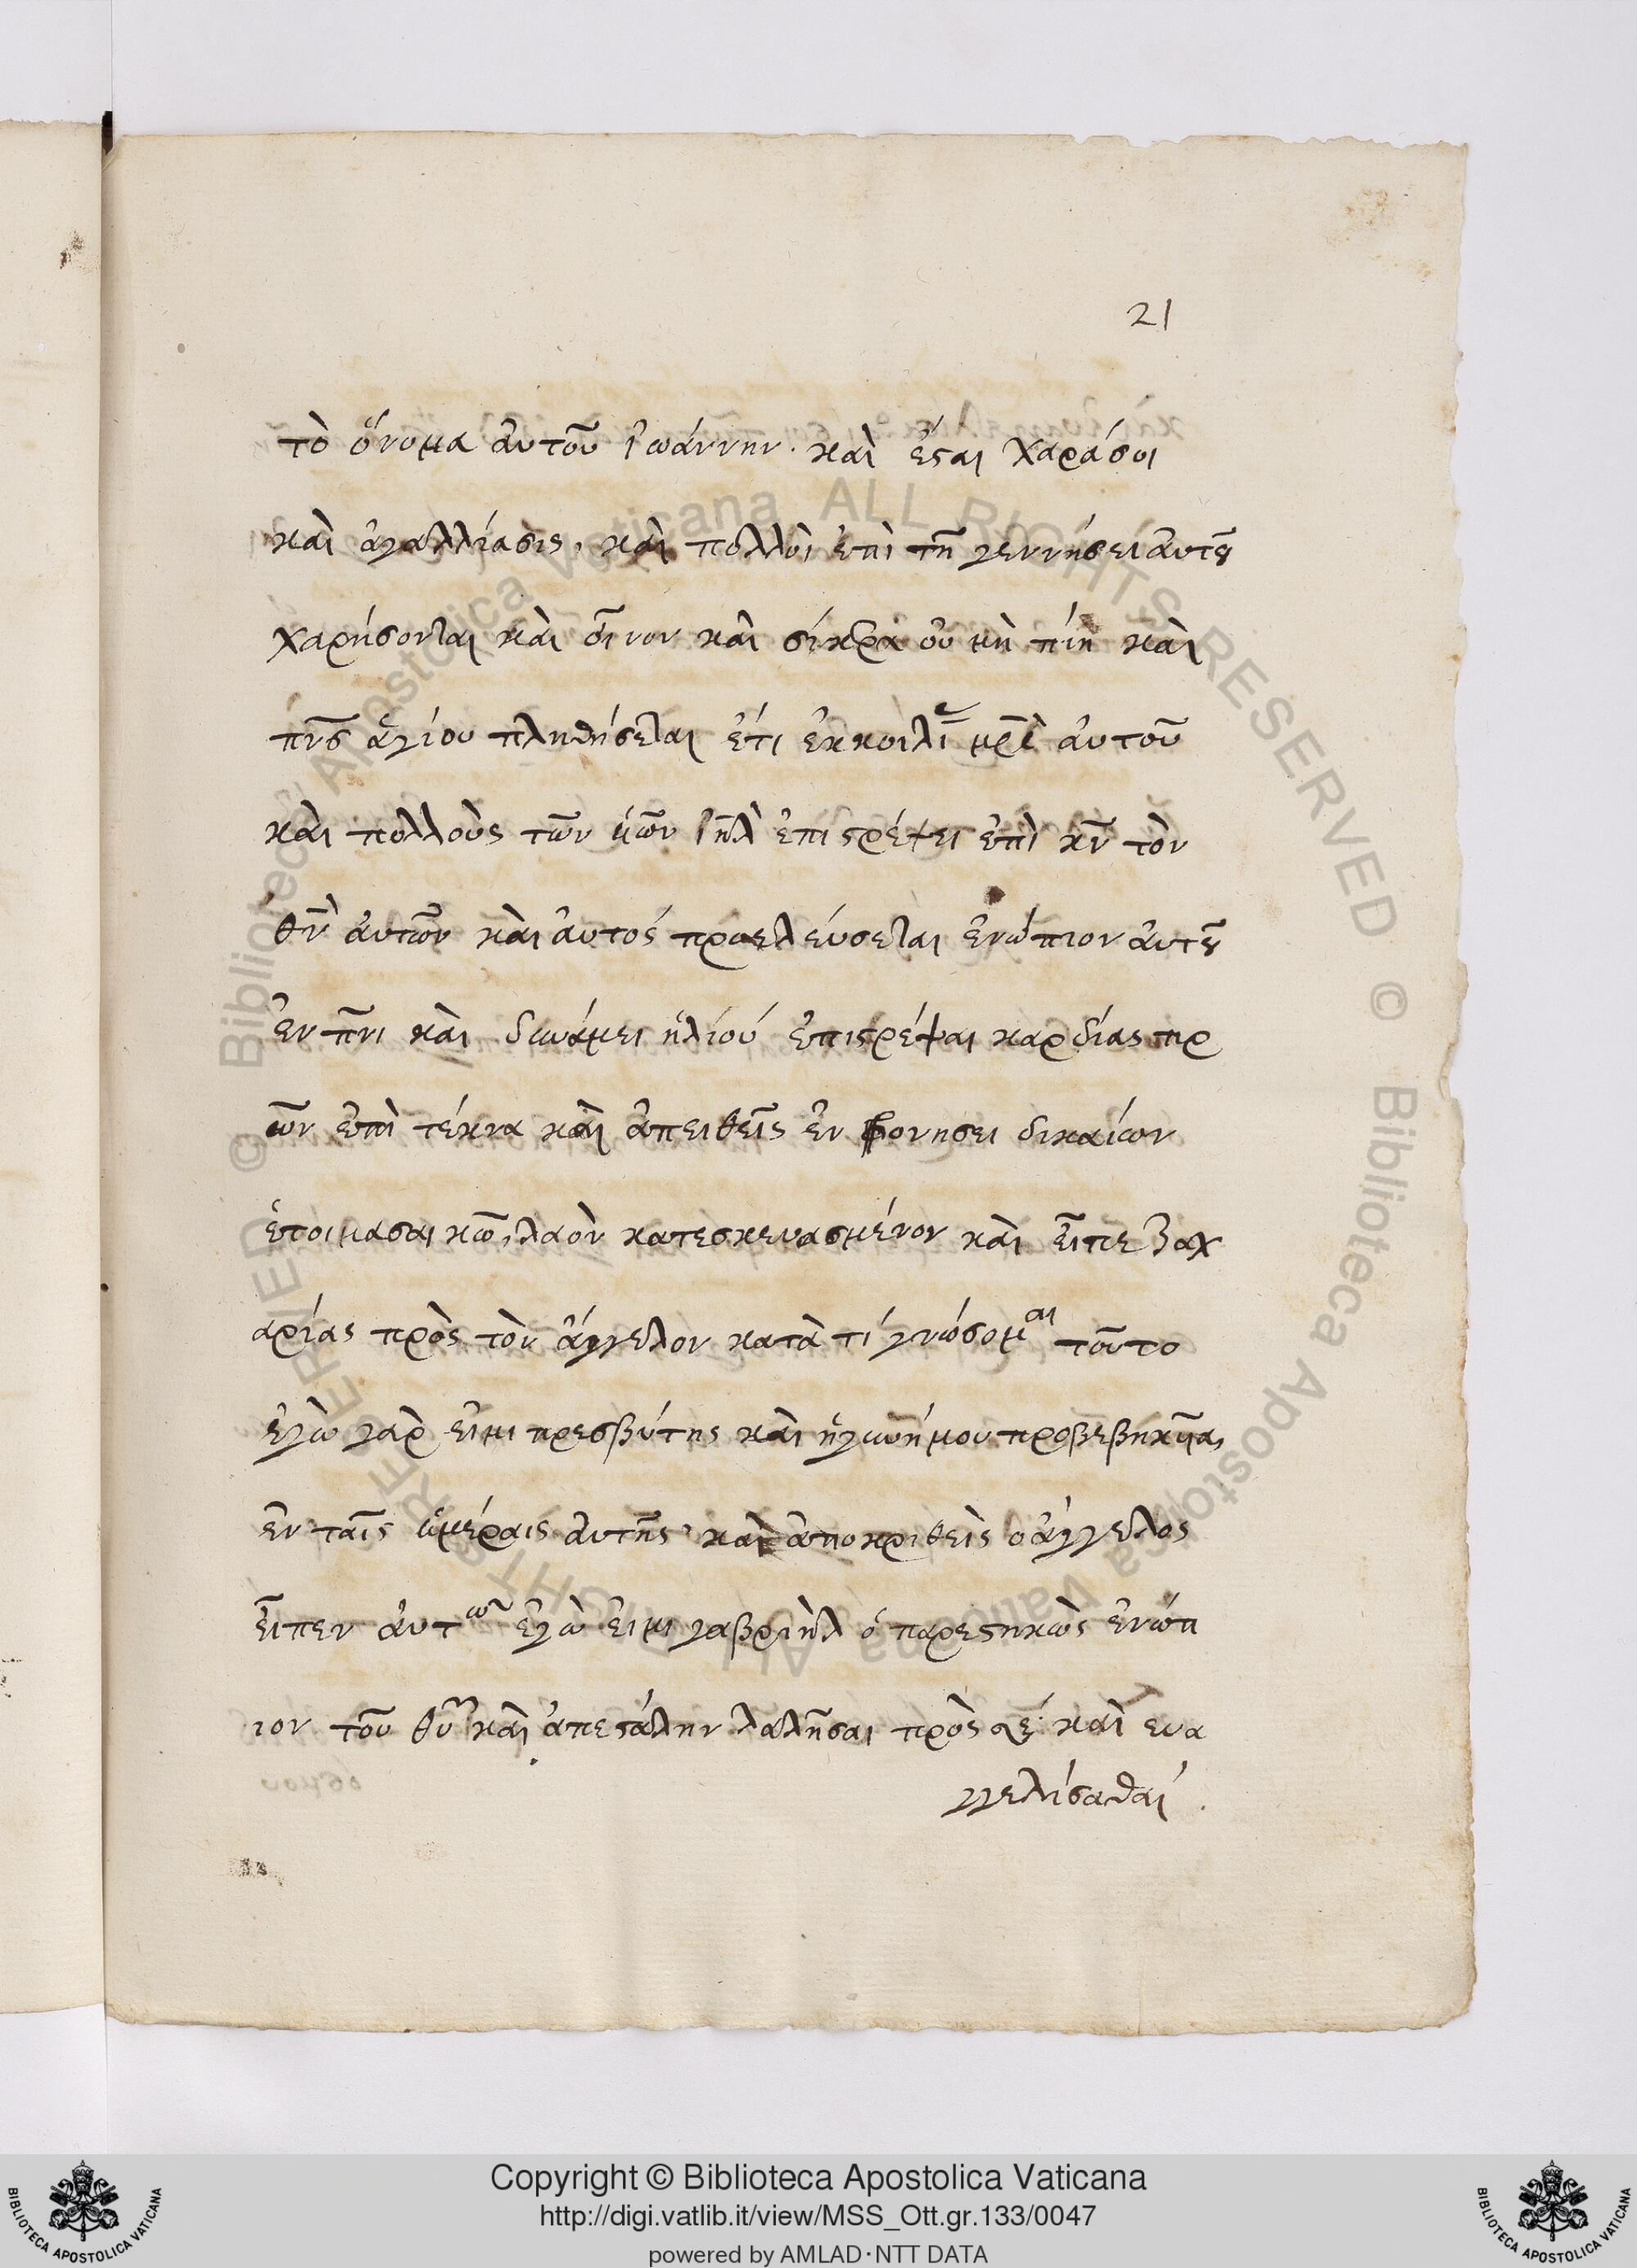 21
τὸ ὄνομα ἀυτοῦ ἰωάννην. καὶ ἔςαι χαράσοι
καὶ ἀγαλλίασις, καὶ πολλὸι ἐπὶ τῆ γεννήσει ἀυτȣ͂
χαρήσονται καὶ ὄινον καὶ σίκερα ὀυ μὴ πίη καὶ
πν̅ς ἁγίου πληθήσεται ἔτι ἐκκοιλί μρ̅ς ἀυτοῦ
καὶ πολλοὺς τῶν ὑῶν ἰη̅λ ἐπιςρέψει ἐπὶ κν̅ τὸν
θν̅ ἀυτῶν καὶ ἀυτός προελέυσεται ἐνώπιον ἀυτȣ͂
ἐν πν̅ι καὶ δυνάμει ἡλίού ἐπιςρέψαι καρδίας πρ
ῶν ἐπὶ τέκνα καὶ ἀπειθεῖς ἐν φρονησει δικαίων
ἑτοιμασαι κω̅, λαὸν κατεσκευασμένον καὶ εἶπε ζαχ
αρίας πρὸς τὸν ἄγγελον κατὰ τί γνώσομαι τοῦτο
ἐγὼ γὰρ ἐιμι πρεσβύτης καὶ ἡγυνή μου προβεβηκῦια,
ἐν ταῖς ἡμέραις ἀυτῆς· καὶ ἀποκριθεὶς ο ἄγγελος
εἶπεν ἀυτῶ ἐγὼ ἐιμι γαβριὴλ ὁ παρεςηκὼς ἐνώπ
ιον τοῦ θυ̅ καὶ ἀπεςάλην λαλῆσαι πρὸς σέ καὶ ευα
γγελίσαθαί
Copyright © Biblioteca Apostolica Vaticana
http://digi.vatlib.it/view/MSS_Ott.gr.133/0047
powered by AMLAD·NTT DATA
BIBLIOTECA APOSTOLICA VATICANA
BIBLIOTECA APOSTOLICA VATICANA
© Biblioteca Apostolica Vaticana ALL RIGHTS RESERVED
© Biblioteca Apostolica Vaticana ALL RIGHTS RESERVED